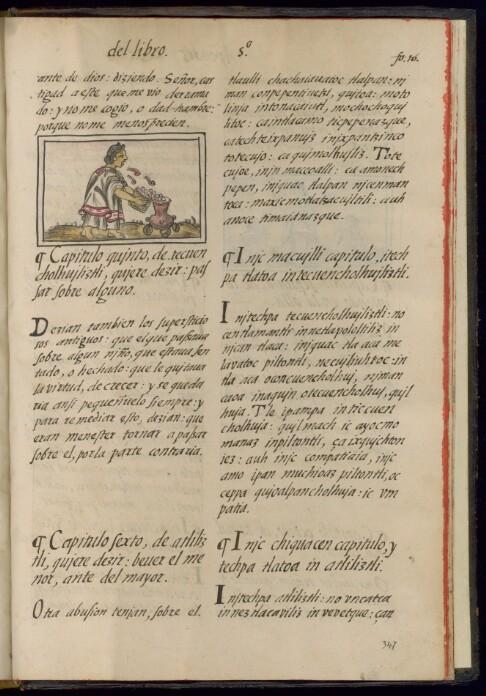 del libro.
5.º
fo. 16.
ante de dios: diziendo. Señor, cas
tigad a este que me vio derrama
do: y no me cogio, o dad-hambre:
porque no me menosprecien.
¶ Capitulo quinto, de tecuen
cholhuiliztli, quiere dezir: pas
sar sobre alguno.
Dezian tambien los supersticio
sos antiguos: que el que passaua
sobre algun niño, que estaua sen
tado, o hechado: que le quitaua
la virtud, de crecer: y se queda
ria ansi pequeñuelo siempre: y
para remediar esto, dezian: que
era menester tornar a passar
sobre el, por la parte contraria.
¶ Capitulo sexto, de atliliz
tli, quiere dezir: beuer el me
nor, ante del mayor.
Otra abusion tenjan, sobre el
tlaulli chachaiauatoc tlalpan: nj
man conpepenjuetzi, quitoa: moto
linja intonacaiutl, mochoquiz
litoc: ca intlacamo ticpepenazque,
ca techteixpanujz in jxpantzinco
totecujo: ca quimolhujliz. Tote
cujoe, injn maceoalli: ca amo nech
pepen, injquac tlalpan njcenman
toca: maxicmotlatzacujltili: auh
anoce timaianazque.
¶ Injc macuilli capitulo, itech
pa tlatoa in tecuencholhujliztli.
Initechpa tecuencholhujliztli: no
centlamantli in netlapololtiliz in
njcan tlaca: injquac tla aca me
lavatoc piltontli, necujtiuhtoc: in
tla aca oconcuencholhuj, njman
cuoa inaqujn otecuencholhuj, qujl
huja. Tle ipampa in ticcuen
cholhuja: qujlmach ic aiocmo
manaz inpiltontli, ça ixqujchton
iez: auh injc compatiaia, injc
amo ipan muchioaz piltontli, oc
ceppa qujoalpancholhuja: ic vm
patia.
¶ Injc chiquacen capitulo, y
techpa tlatoa in atliliztli.
Initechpa atliliztli: no vncatca
in neztlacaviliz in vevetque: çan
347